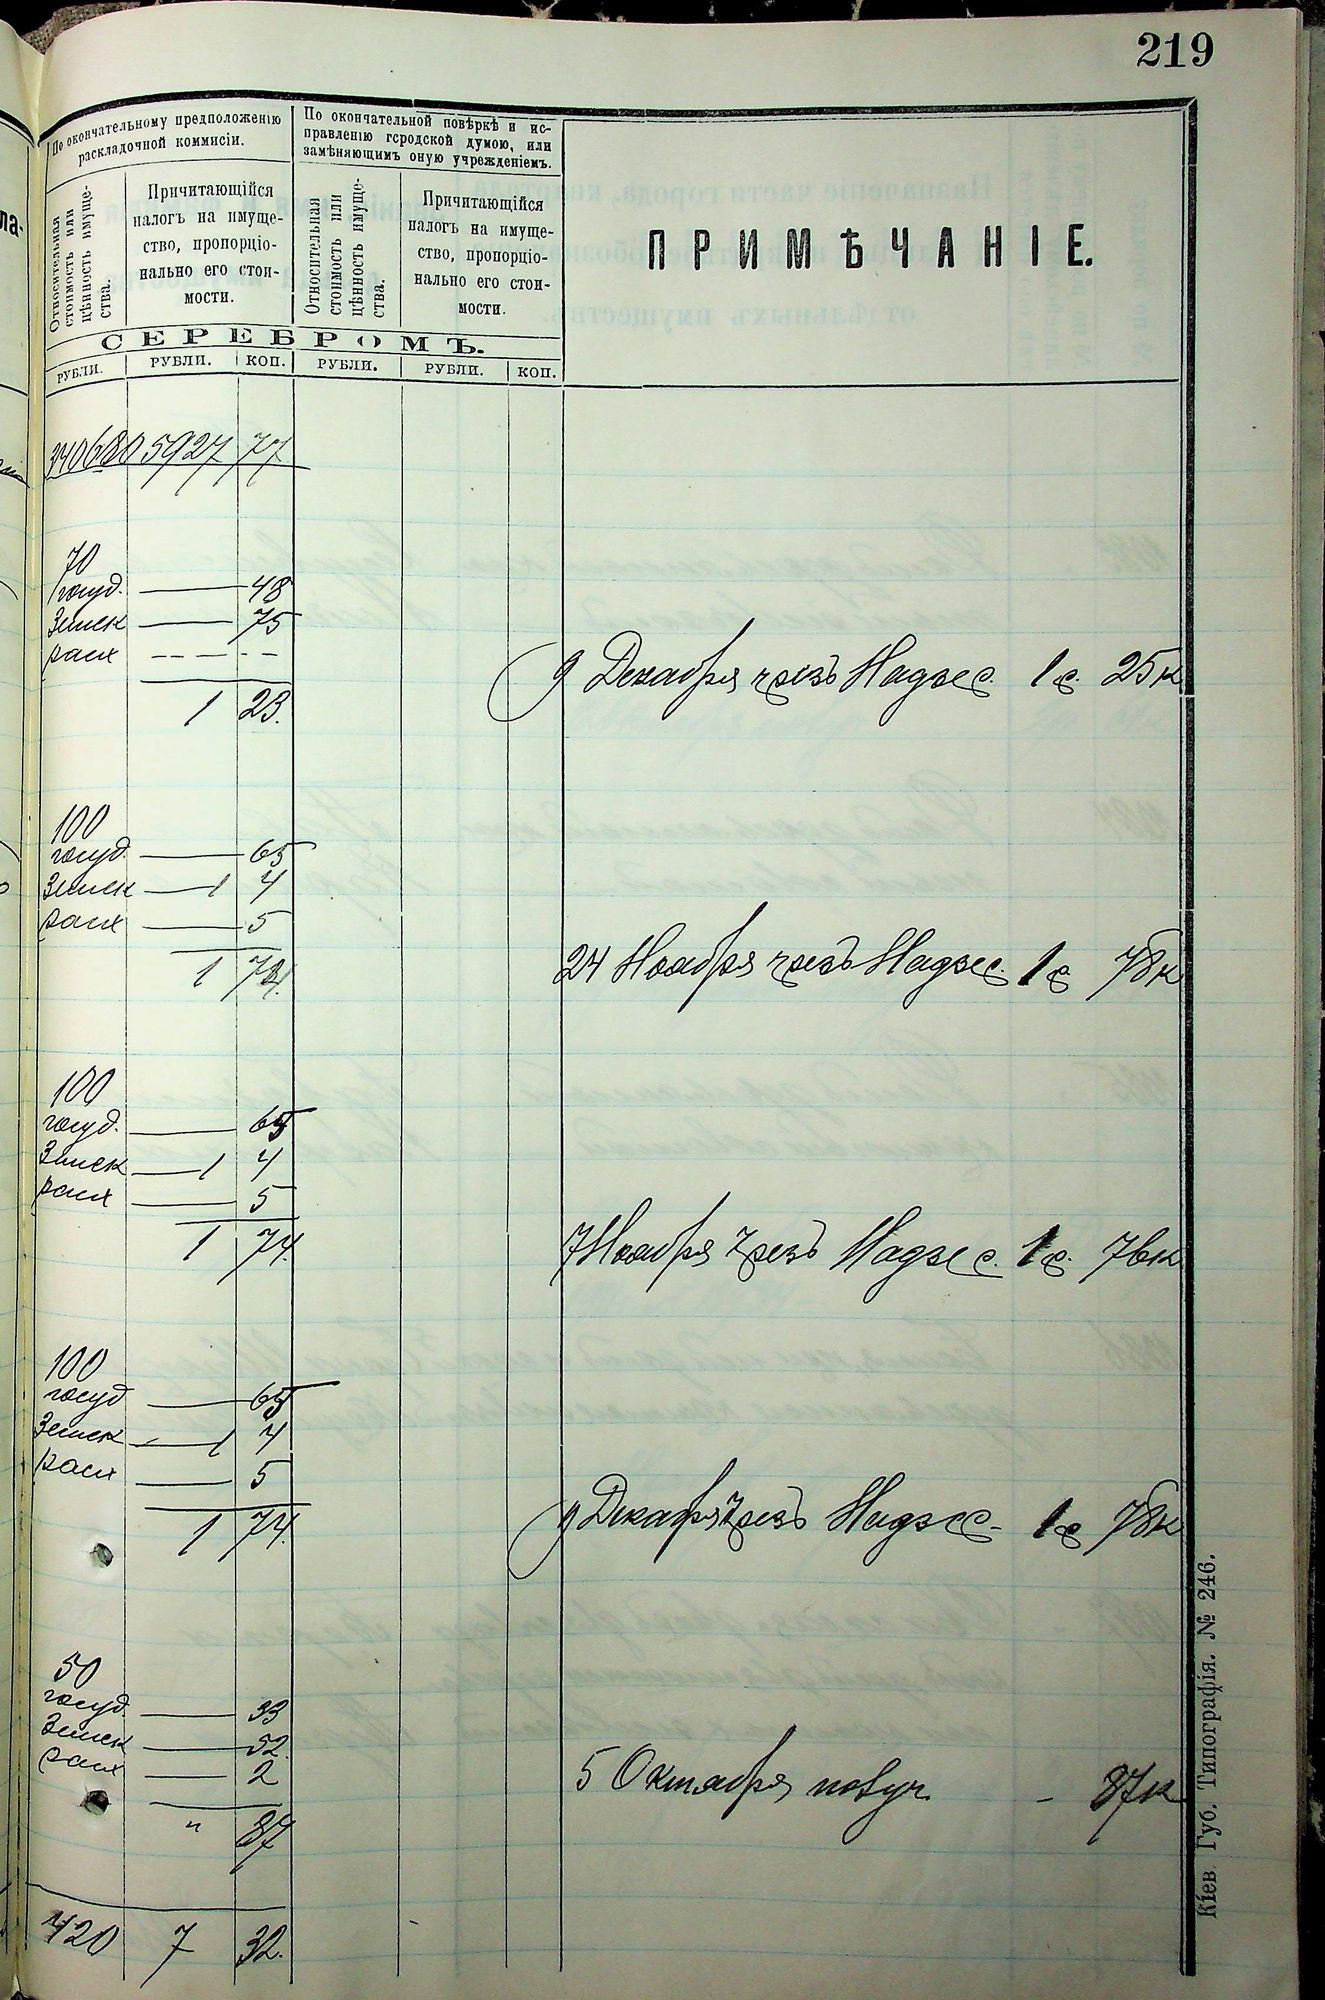 219
По окончательному предположенію
раскладочной коммисіи.
По окончательной повѣркѣ и ис-
правленію городской думою, или
замѣняющимъ оную учрежденіемъ.
Относительная
стоимость или
цѣнность имуще-
ства.
Причитающійся
налогъ на имуще-
ство, пропорціо-
нально его стои-
мости.
Относительная
стоимость или
цѣнность имуще-
ства.
Причитающійся
налогъ на имуще-
ство, пропорціо-
нально его стои-
мости.
ПРИМѢЧАНІЕ.
СЕРЕБРОМЪ.
РУБЛИ. РУБЛИ. КОП. РУБЛИ. РУБЛИ. КОП.
340680 5927 77
70
госуд. 48
Земск 75
расх
9 Декабря чрезъ Надзес. 1 р. 25к
1 23.
100
госуд. 65
Земск 1 4
расх 5
24 Ноября чрезъ Надзес. 1 р 78к
1 74.
100
госуд. 65
Земск 1 4
расх 5
7 Ноября чрезъ Надзес. 1 р. 76к
1 74.
100
госуд 65
Земск 1 4
расх 5
9 Декабря чрезъ Надзес. 1 р 78к
1 74.
50
госуд. 33
Земск 52.
расх 2
5 Октября - 87к
" 87
420 7 32.
Кіев. Губ. Типографія. № 246.